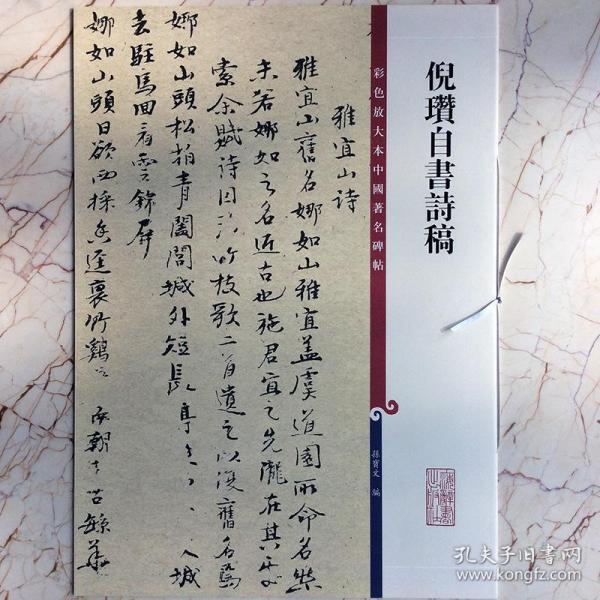 倪瓚自書詩稿
彩色放大本中國著名碑帖
孫寶文 編
雅宜山詩
雅宜山舊名娜如山雅宜蓋虞道園所命名然
未若娜如之名近古也施君宜之先隴在其下
索余賦詩因竹枝歌二首遺之以復舊名焉
娜如山頭松柏青闔閭城外短長亭入城
去駐馬回看雲錦屏
娜如山頭日欲西採香逕裏竹雞
孔夫子旧书网
www.kongfz.com